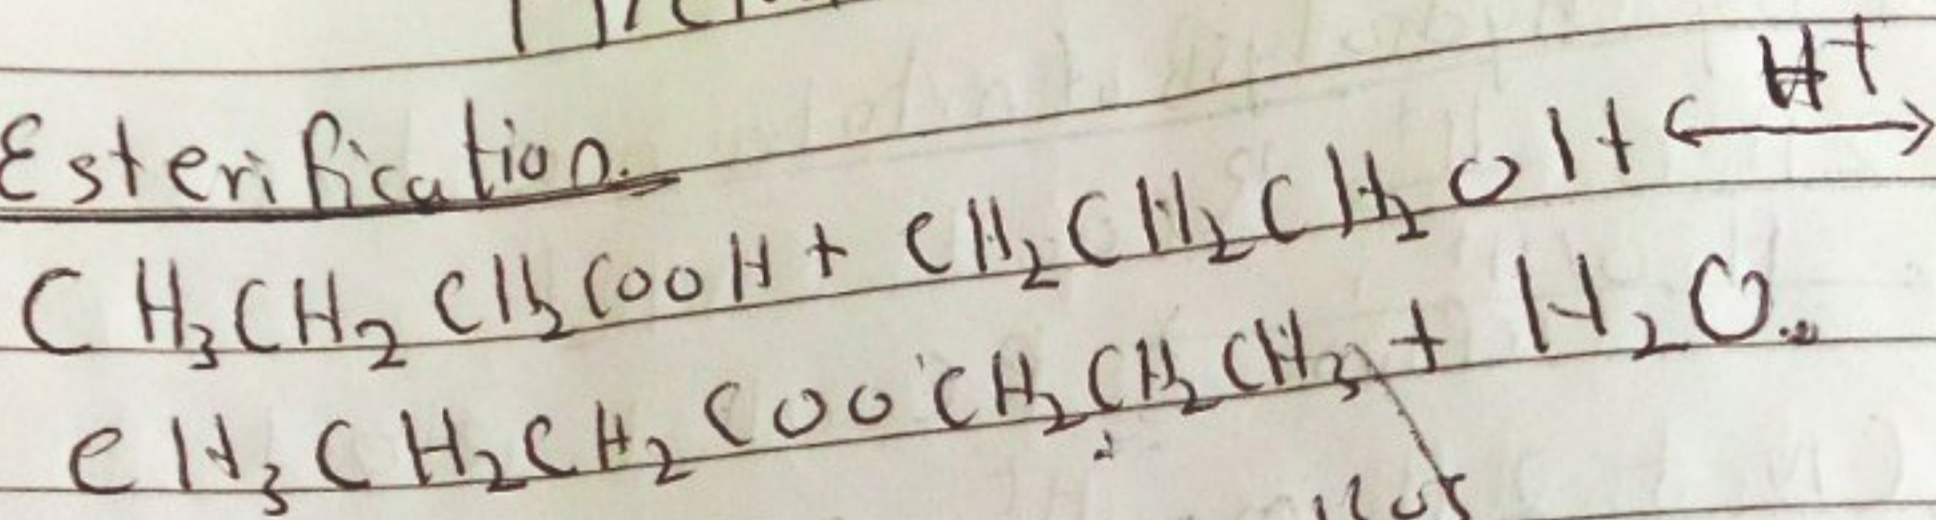 Esterification.
CH₃CH₂CH₂COOH + CH₂CH₂CH₂OH <-H⁺->
CH₃CH₂CH₂COOCH₂CH₂CH₃ + H₂O.